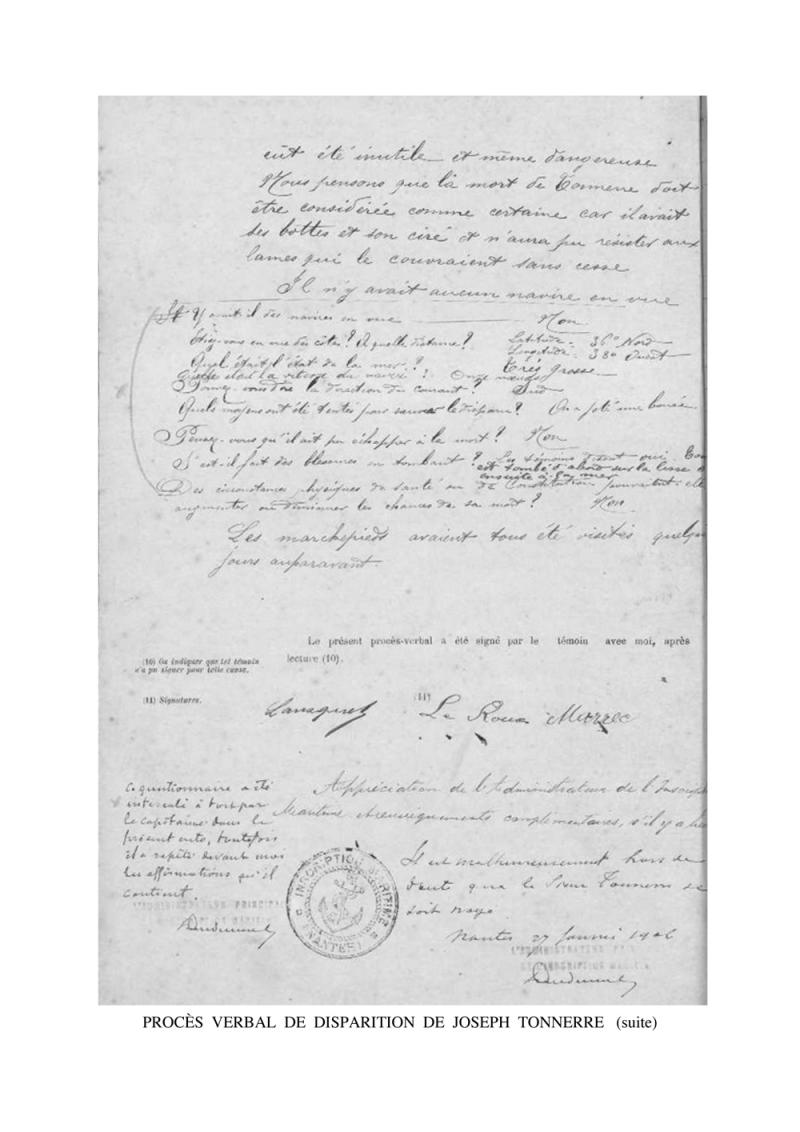 eût été inutile et même dangereuse
Nous pensons que la mort de Tonnerre doit
être considérée comme certaine car il avait
ses bottes et son ciré et n'aura pu résister aux
lames qui le couvraient sans cesse
Il n'y avait aucun navire en vue
Y avait il des navires en vue Non
Etiez-vous en vue des côtes? A quelle distance? Latitude - 36° Nord
Longitude - 38° Ouest
Quel était l'état de la mer? Très grosse
Quelle était la vitesse du navire? Onze nœuds
Donnez-vous la direction du courant? Sud
Quels moyens ont été tentés pour sauver le disparu? On a jeté une bouée
Pensez-vous qu'il ait pu échapper à la mort? Non
S'est-il fait des blessures en tombant? Les témoins disent oui
est tombé d'abord sur la lisse
ensuite à la mer
Des circonstances physiques de santé ou de Constitution pouvaient-elles
augmenter ou diminuer les chances de sa mort? Non
Les marchepieds avaient tous été visités quelq
jours auparavant.
Le présent procès-verbal a été signé par le témoin avec moi, après
lecture (10).
(10) Ou indiquer que tel témoin
n'a pu signer pour telle cause.
(11) Signatures.
(11)
Le Roux Murzec
Ce questionnaire a été
intercalé à tort par
le capitaine dans le
présent acte, toutefois
il a répété devant moi
les affirmations qu'il
contient
L'ADMINISTRATEUR PRINCIPAL
Appréciation de l'Administrateur de l'Inscrip
Maritime et renseignements complémentaires, s'il y a lieu
Il est malheureusement hors de
doute que le Sieur Tonnerre se
soit noyé
INSCRIPTION MARITIME
(NANTES)
Nantes 27 Janvier 1906
PROCÈS VERBAL DE DISPARITION DE JOSEPH TONNERRE (suite)